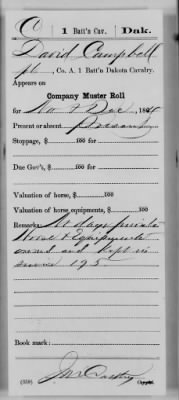 C | 1 Batt'n Cav. | Dak.
David Campbell
Pt, Co. A, 1 Batt'n Dakota Cavalry.
Appears on
Company Muster Roll
for Nov & Dec, 1864
Present or absent Present
Stoppage, $ 100 for
Due Gov't, $ 100 for
Valuation of horse, $ 100
Valuation of horse equipments, $ 100
Remarks: No days private
Horse & Equipments
owned and kept in
service 175
Book mark:
(359)
Copyist.